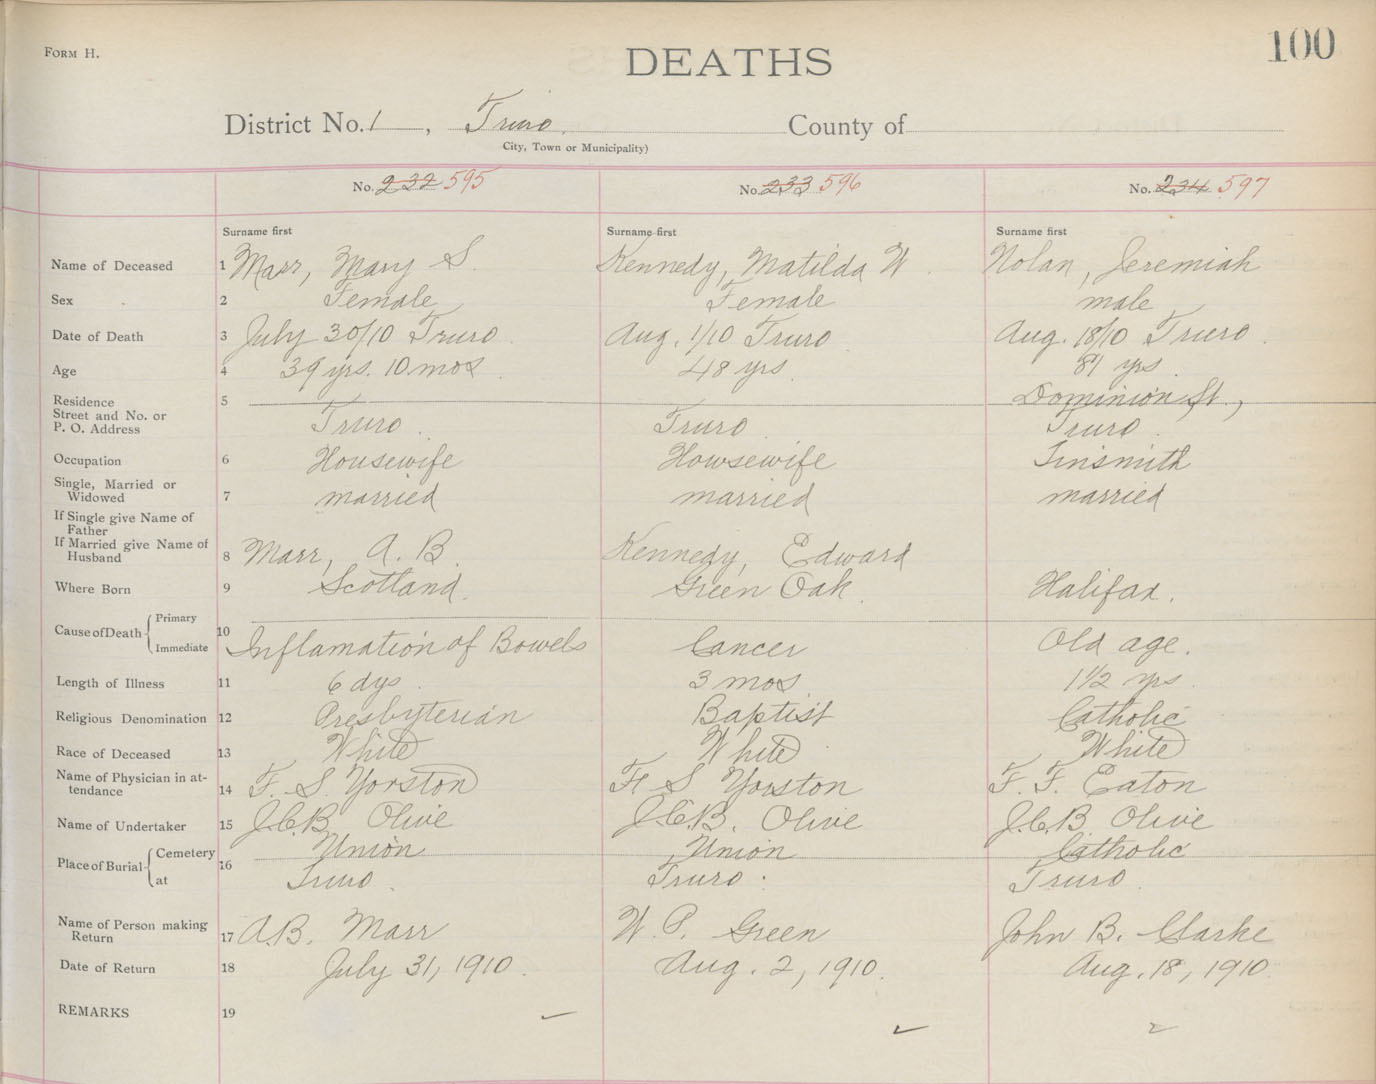 FORM H.
DEATHS
100
District No. 1, Truro County of
City, Town or Municipality)
No. 232 595 No. 233 596 No. 234 597
Surname first Surname first Surname first
Name of Deceased 1 Marr, Mary S. Kennedy, Matilda W. Nolan, Jeremiah
Sex 2 Female Female male
Date of Death 3 July 30/10 Truro Aug. 1/10 Truro Aug. 18/10 Truro
Age 4 39 yrs. 10 mos 48 yrs. yrs.
Residence 5 Dominion St.,
Street and No. or
P. O. Address Truro. Truro Truro.
Occupation 6 Housewife Howsewife Tinsmith
Single, Married or
Widowed 7 married married married
If Single give Name of
Father
If Married give Name of
Husband 8 Marr, A. B. Kennedy, Edward
Where Born 9 Scotland. Green Oak. Halifax.
Cause of Death Primary
10
Immediate Inflamation of Bowels Cancer Old age.
Length of Illness 11 6 dys. 3 mos. 1 1/2 yrs.
Religious Denomination 12 Presbyterian Baptist Catholic
Race of Deceased 13 White White White
Name of Physician in at-
tendance 14 F. S. Yorston F. S Yorston F. F. Eaton
Name of Undertaker 15 J.C.B. Olive J.C.B. Olive J.C.B Olive
Place of Burial Cemetery 16 Union Union Catholic
at Truro. Truro. Truro.
Name of Person making
Return 17 A.B. Marr W. P. Green John B. Clarke
Date of Return 18 July 31, 1910. Aug. 2, 1910. Aug. 18, 1910.
REMARKS 19